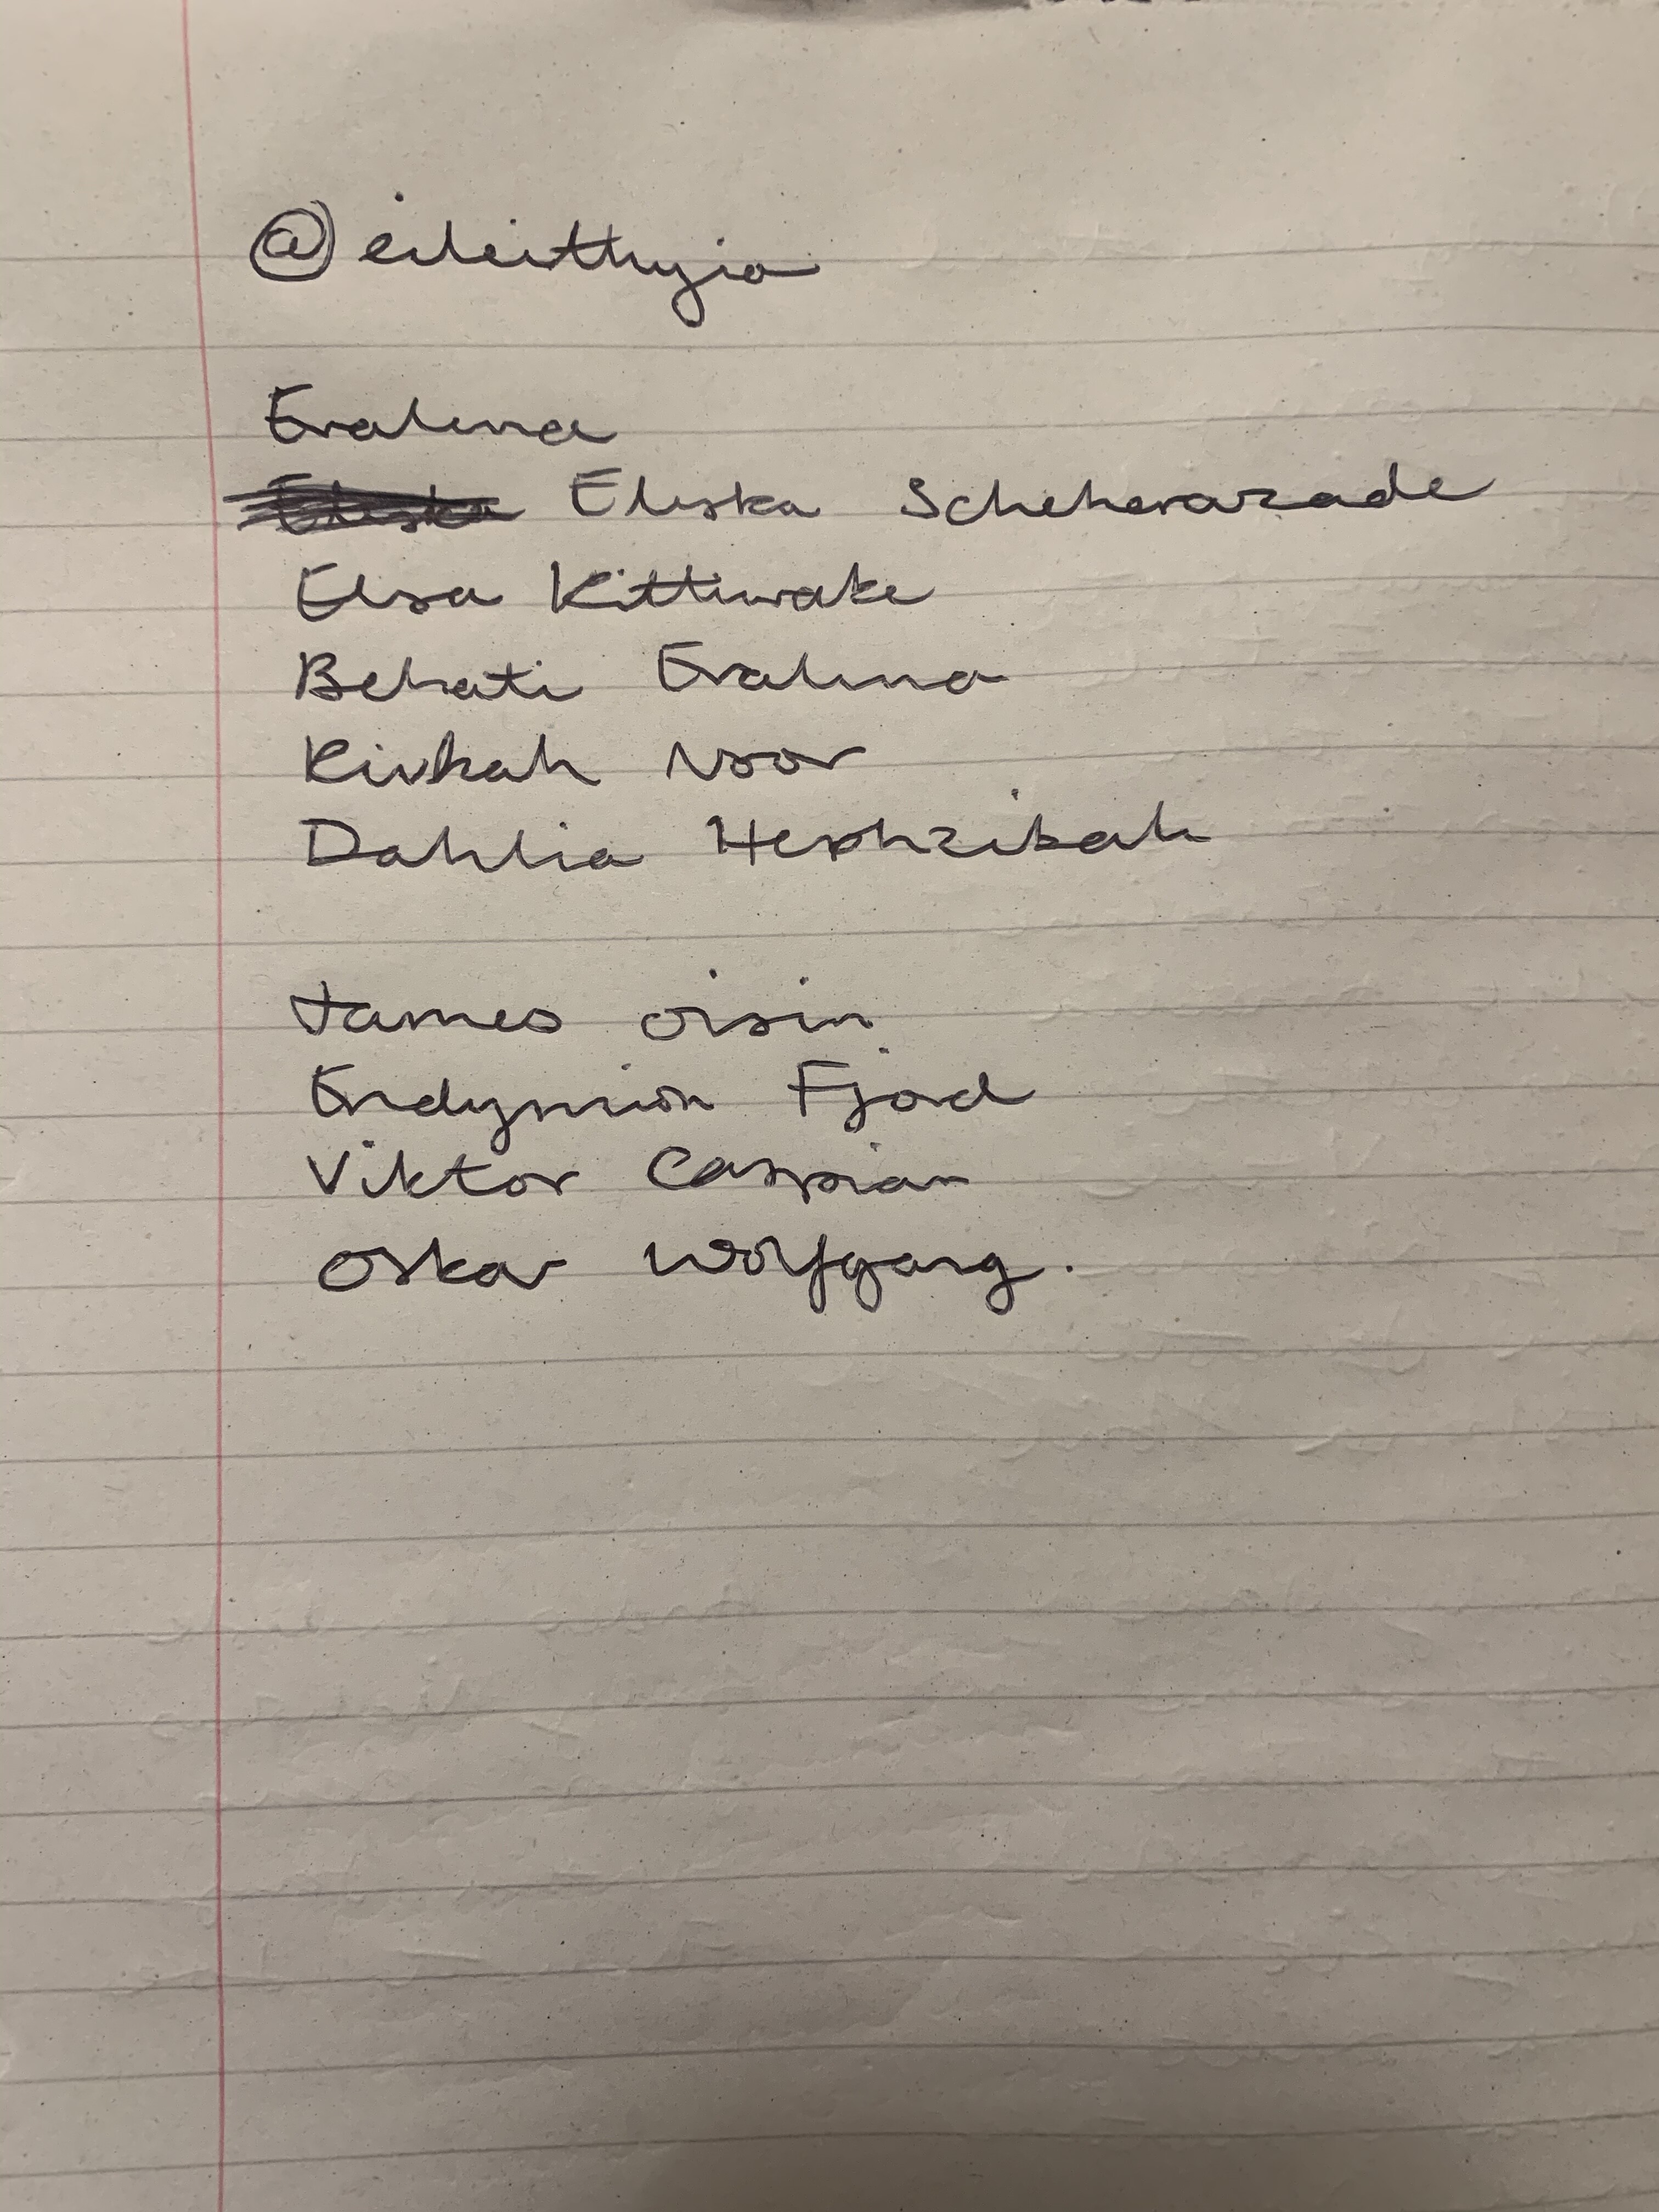 @eileithyia
Evalina
Eliska Scheherazade
Elsa Kittiwake
Behati Evalina
Rivkah Noor
Dahlia Hephzibah
James Oisin
Endymion Fjord
Viktor Caspian
Oskar Wolfgang.